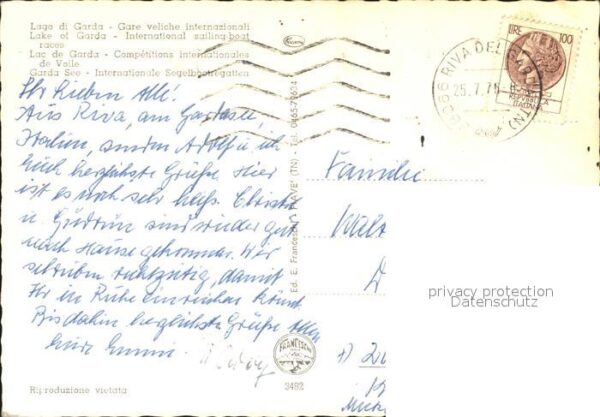 Lago di Garda - Gare veliche internazionali
Lake of Garda - International sailing-boat
races
Lac de Garda - Compétitions internationales
de Voile
Garda See - Internationale Segelbootregatten
Ihr lieben Alle!
Aus Riva, am Gardasee,
Italien, senden Adolf u. ich
Euch herzlichste Grüße. Hier
ist es noch sehr heiß. Christl
u. Gudrun sind wieder gut
nach Hause gekommen. Wir
schreiben rechtzeitig, damit
Ihr in Ruhe einreichen könnt.
Bis dahin herzlichste Grüße Allen
Eure Emmi. Adolf
Riproduzione vietata
Ed. E. Franceschi - "ALVE" (TN) - Tel. 0465-75624
FRANCESCHI
3492
LIRE 100
38066 RIVA DEL GARDA (TN)
25.7.7
Familie
Walt
D
privacy protection
Datenschutz